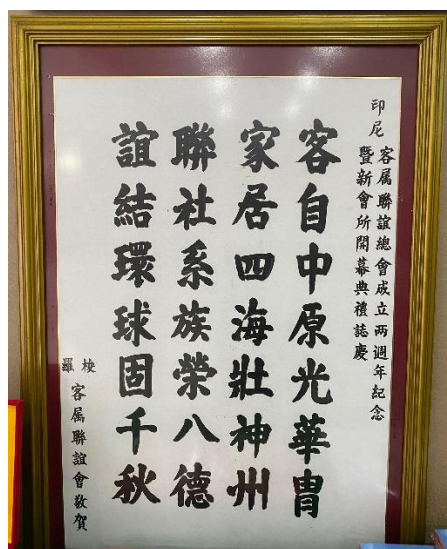 印尼
客属聯誼總會成立两週年紀念
暨新會所開幕典禮誌慶
客自中原光華胄
家居四海壯神州
聯社系族榮八德
誼結環球固千秋
梭羅
客属聯誼會敬賀